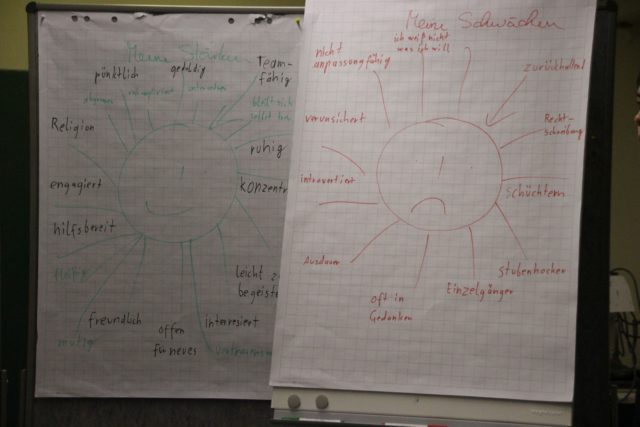 Meine Stärken
pünktlich
geduldig
Team-
fähig
Religion
ruhig
engagiert
konzentr
hilfsbereit
fleißig
leicht z
begeiste
freundlich
Interresiert
mutig
offen
für neues
Meine Schwächen
nicht
anpassungfähig
ich weiß nicht
was ich will
zurückhaltend
verunsichert
Recht-
schreibung
introvertiert
schüchtern
Ausdauer
stubenhocker
oft in
Gedanken
Einzelgänger